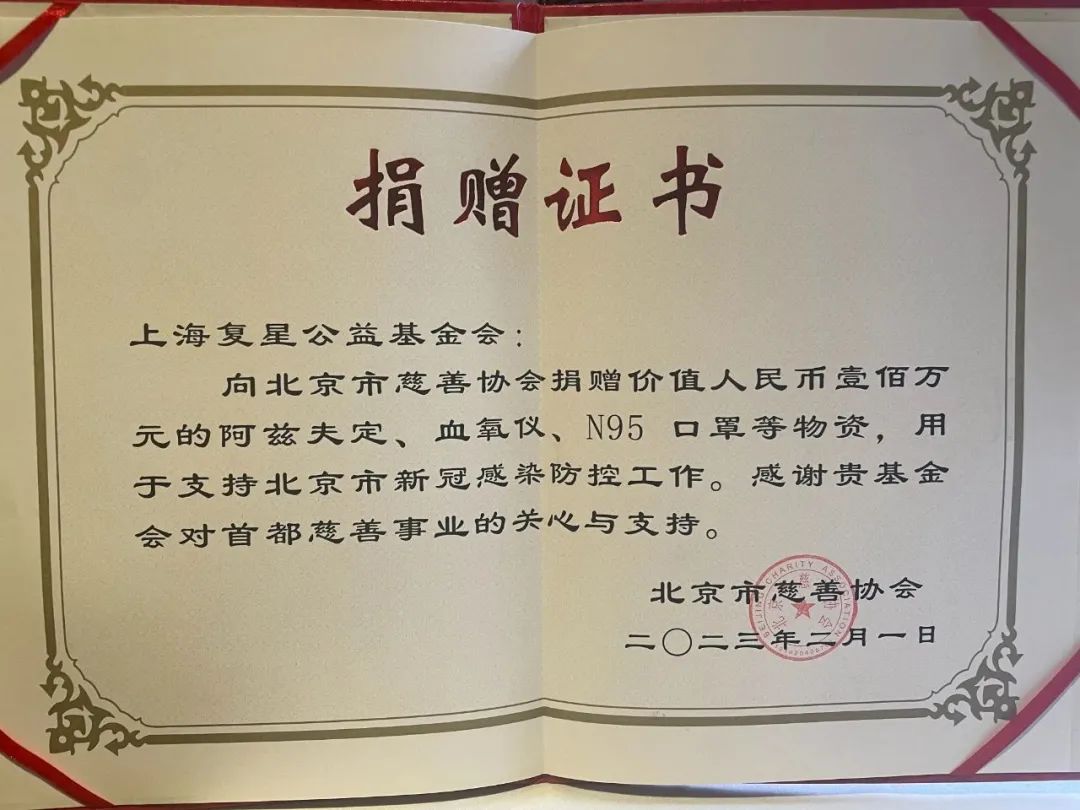 捐赠证书
上海复星公益基金会：
向北京市慈善协会捐赠价值人民币壹佰万
元的阿兹夫定、血氧仪、N95 口罩等物资，用
于支持北京市新冠感染防控工作。感谢贵基金
会对首都慈善事业的关心与支持。
北京市慈善协会
二〇二三年二月一日
BEIJING CHARITY ASSOCIATION
北京市慈善协会